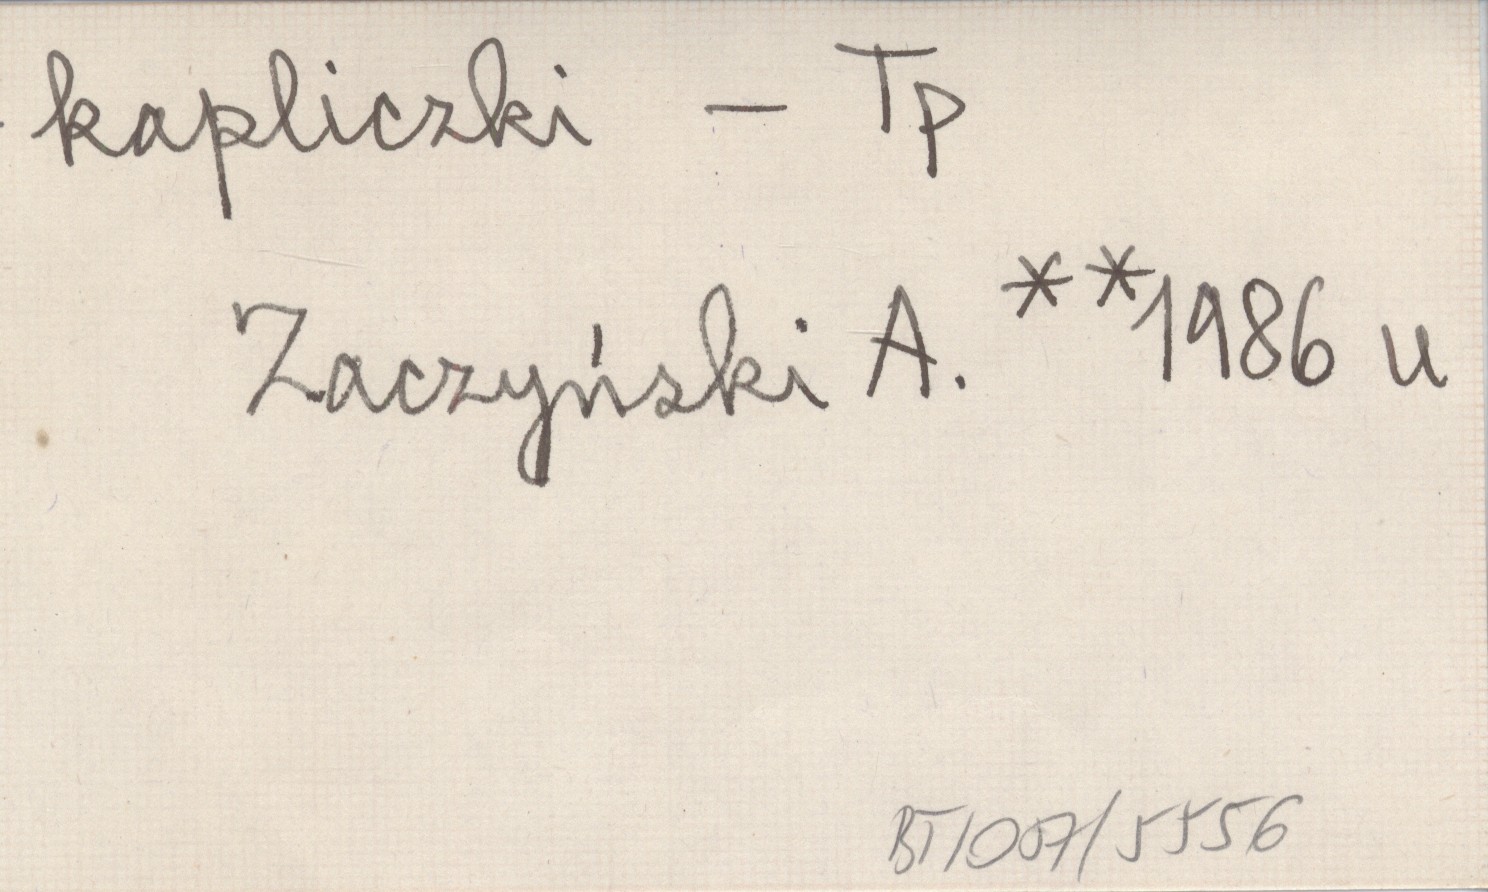 kapliczki – Tp
Zaczyński A. **1986 u
BT/007/5556